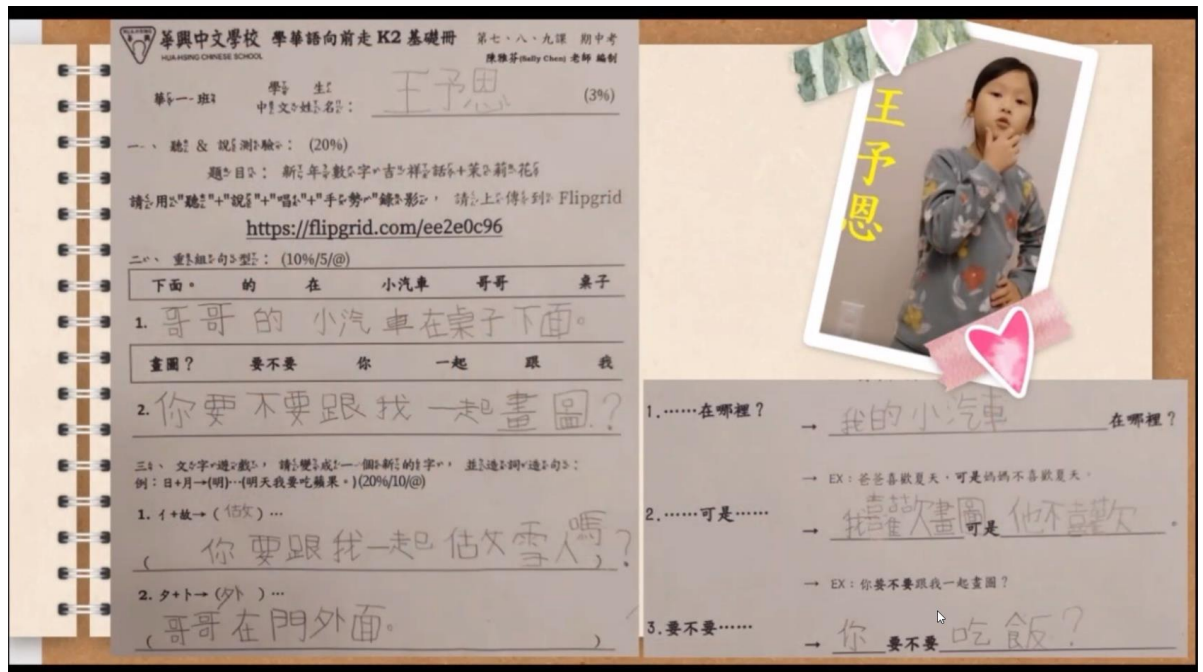 華興中文學校 學華語向前走 K2 基礎冊 第七、八、九課 期中考
HUA HSING CHINESE SCHOOL
陳雅芬(Sally Chen) 老師 編制
華一班
學生
中文姓名: 王予恩 (3%)
一、聽 & 說測驗: (20%)
題目: 新年數字吉祥話+茉莉花
請用"聽"+"說"+"唱"+"手勢"錄影, 請上傳到 Flipgrid
https://flipgrid.com/ee2e0c96
二、重組句型: (10%/5/@)
下面。 的 在 小汽車 哥哥 桌子
1. 哥哥的小汽車在桌子下面。
畫圖? 要不要 你 一起 跟 我
2. 你要不要跟我一起畫圖?
三、文字遊戲, 請變成一個新的字, 並造詞造句:
例:日+月→(明)…(明天我要吃蘋果。)(20%/10/@)
1. 亻+故→(做)…
( 你要跟我一起做雪人嗎? )
2. 夕+卜→(外)…
( 哥哥在門外面。 )
王予恩
1.……在哪裡?
→ 我的小汽車在哪裡?
→ EX:爸爸喜歡夏天,可是媽媽不喜歡夏天。
2.……可是……
→ 我喜歡畫圖可是他不喜歡。
→ EX:你要不要跟我一起畫圖?
3.要不要……
→ 你要不要吃飯?